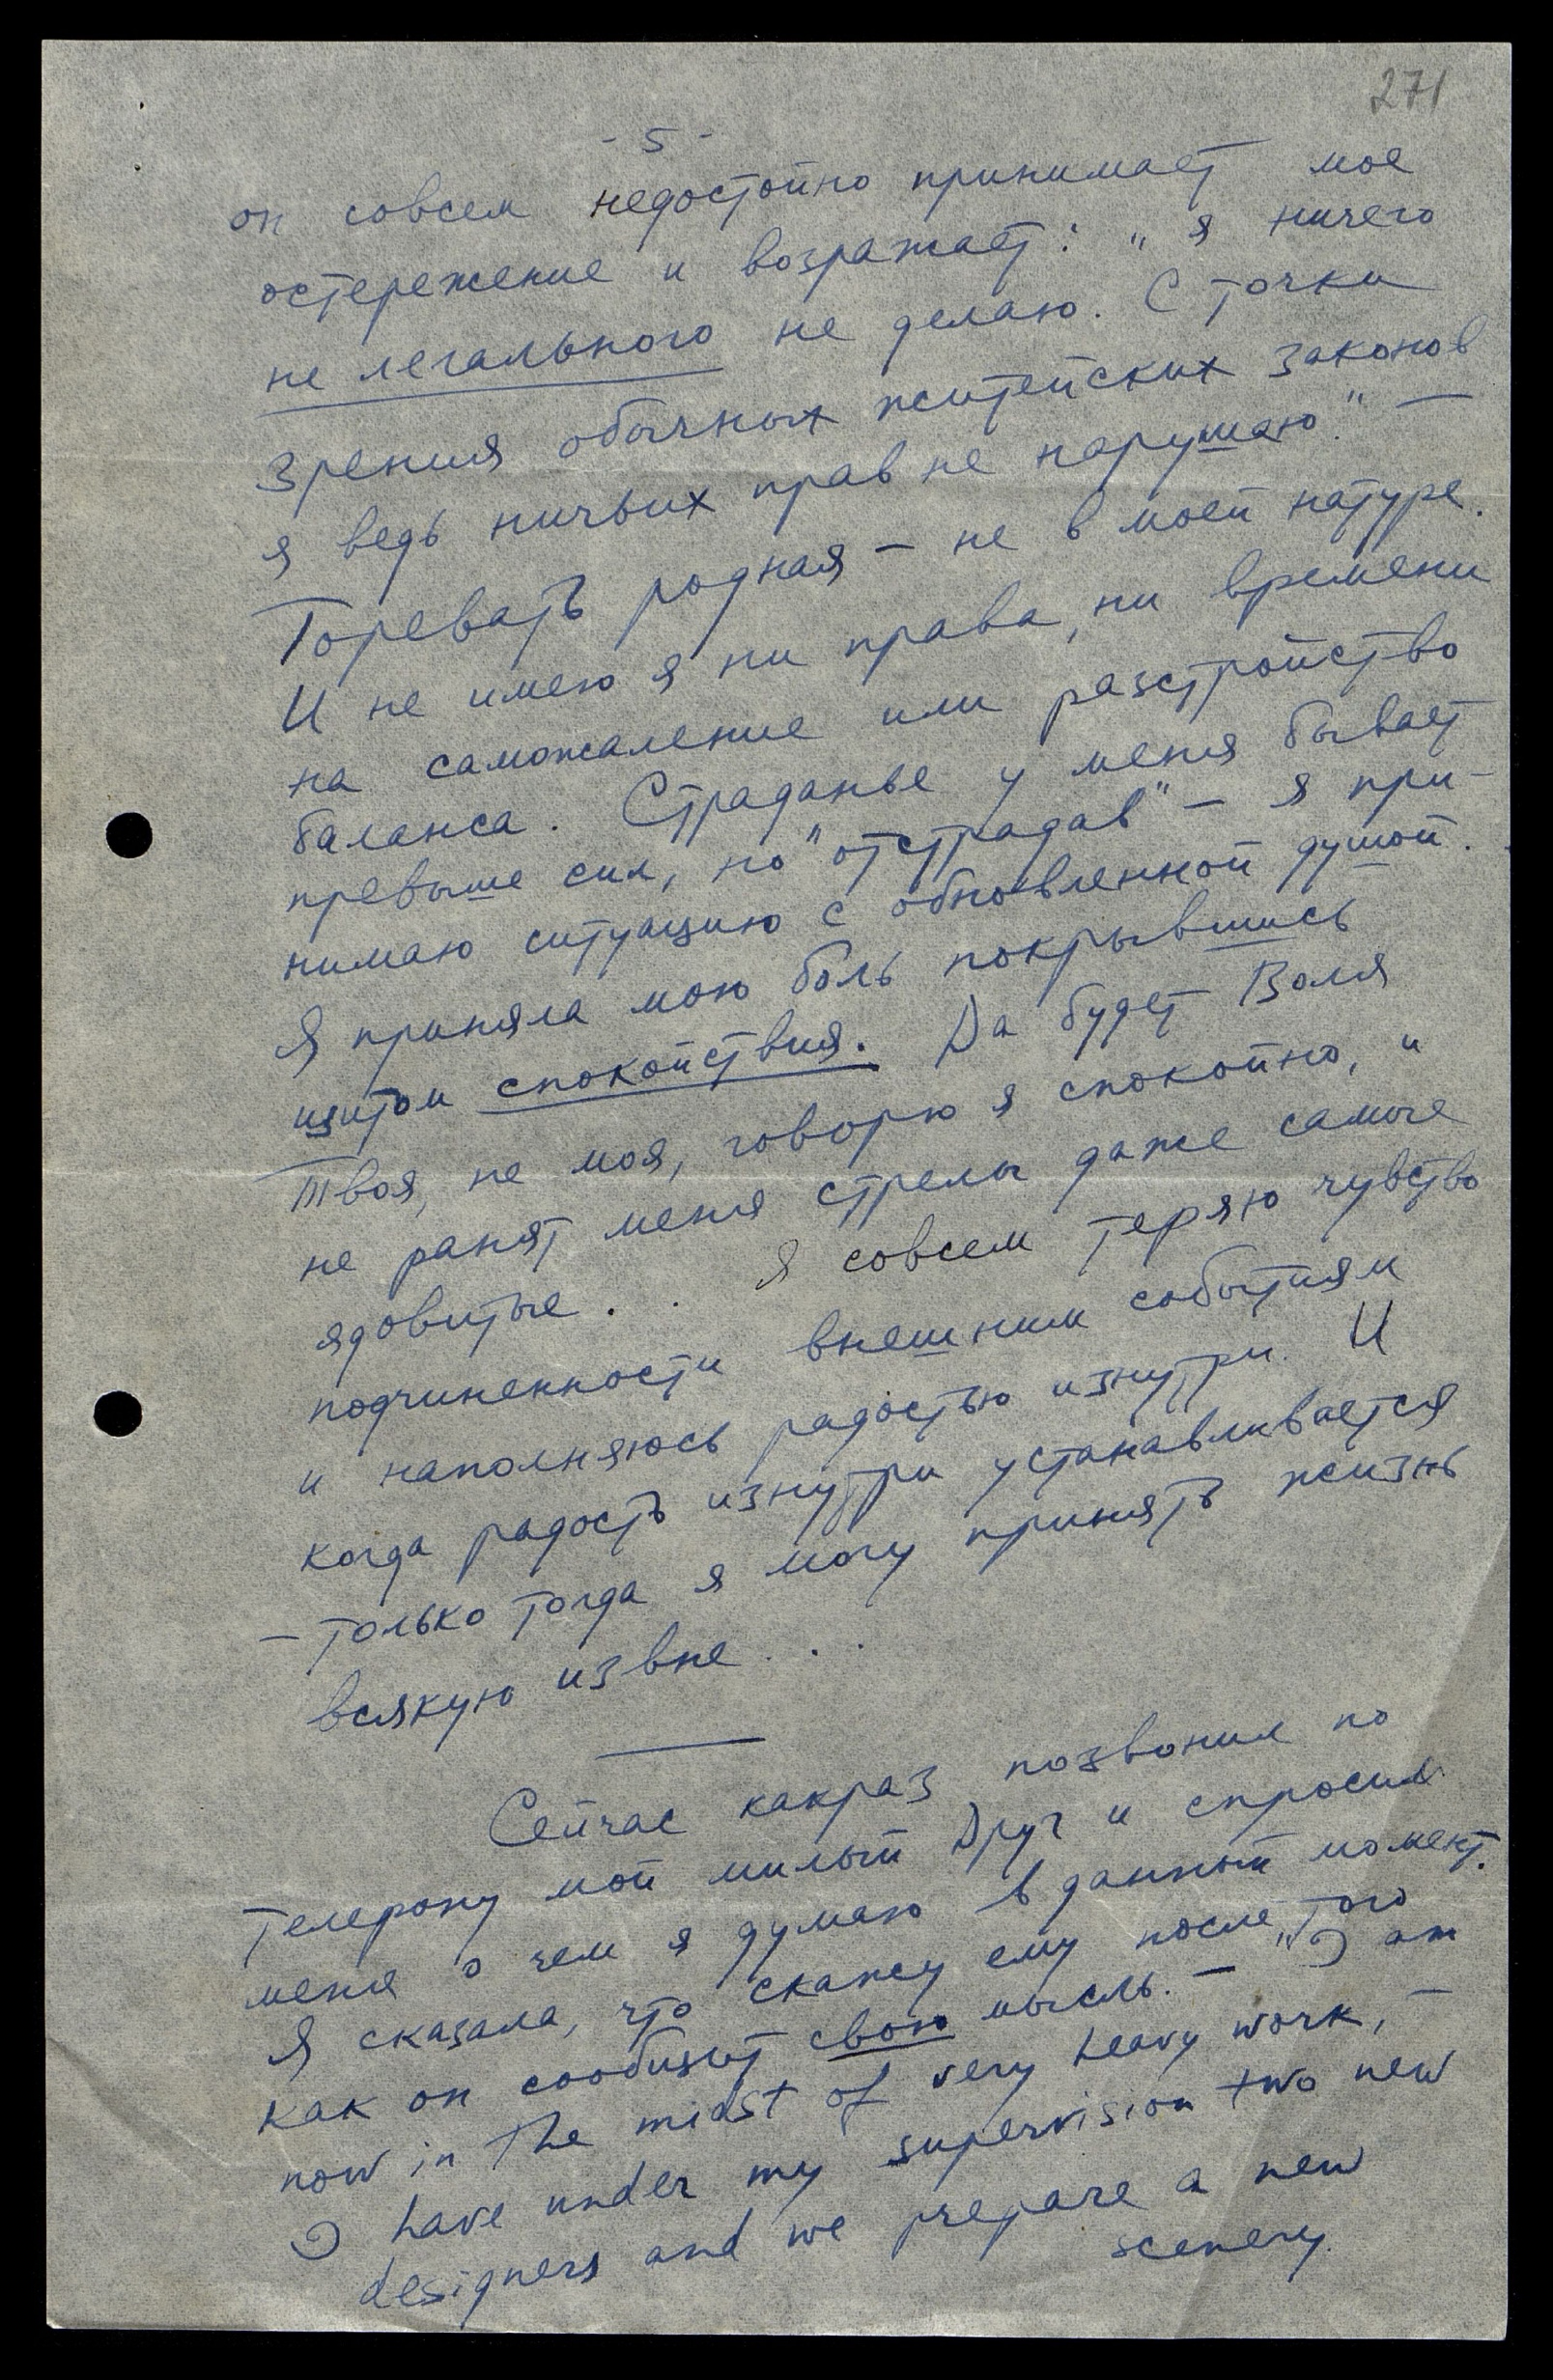 271
- 5 -
он совсем недостойно принимает мое
остережение и возражает: "я ничего
не легального не делаю. С точки
зрения обычных житейских законов
я ведь ничьих прав не нарушаю." —
Горевать родная — не в моей натуре.
И не имею я ни права, ни времени
на саможаление или разстройство
баланса. Страданье у меня бывает
превыше сил, но "отстрадав" — я при-
нимаю ситуацию с обновленной душой.
Я приняла мою боль покрывшись
щитом спокойствия. Да будет Воля
Твоя, не моя, говорю я спокойно, и
не ранят меня стрелы даже самые
ядовитые . . Я совсем теряю чувство
подчиненности внешним событиям
и наполняюсь радостью изнутри. И
когда радость изнутри устанавливается
— только тогда я могу принять жизнь
всякую извне . . .
Сейчас какраз позвонил по
телефону мой милый Друг и спросил
меня о чем я думаю в данный момент.
Я сказала, что скажу ему после того
как он сообщит свою мысль. — "I am
now in the midst of very heavy work, —
I have under my supervision two new
designers and we prepare a new
scenery.